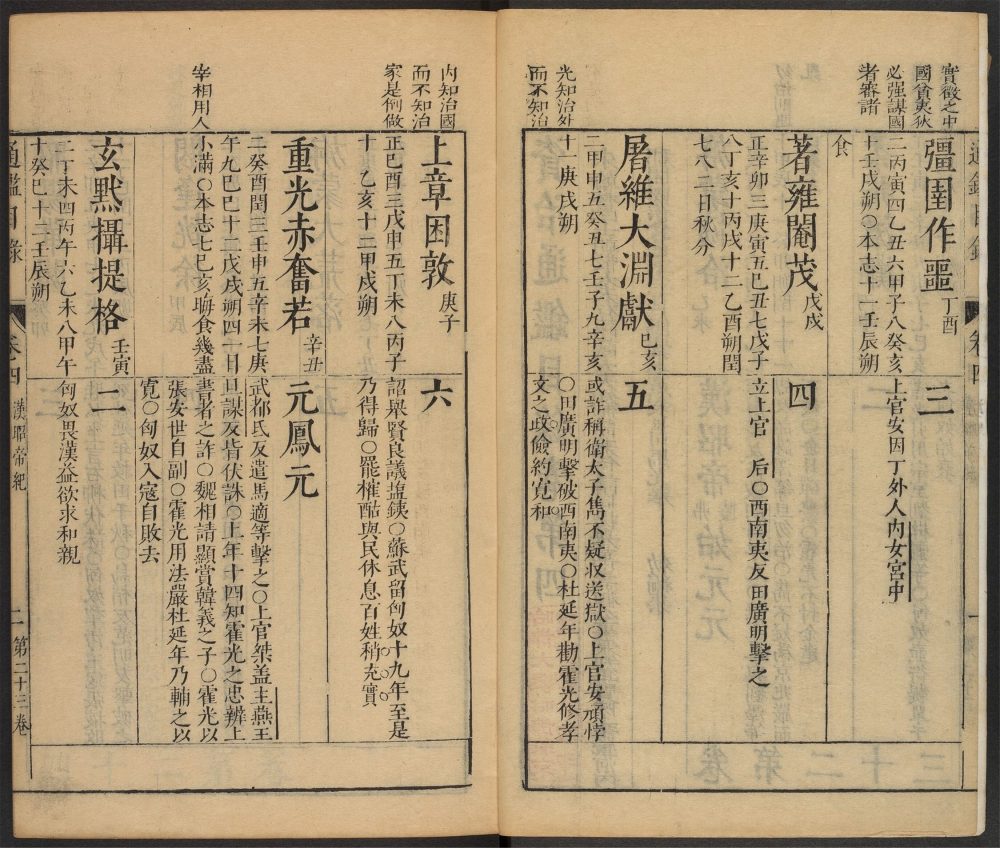 實徵之中
國貧夷狄
必强謀國
者審諸
通鑑目錄
卷四
一
彊圉作噩丁酉
二丙寅四乙丑六甲子八癸亥
十壬戌朔〇本志十一壬辰朔
食
三
上官安因丁外人內女宮中
著雍閹茂戊戌
正辛卯三庚寅五己丑七戊子
八丁亥十丙戌十二乙酉朔閏
七八二日秋分
四
立上官 后〇西南夷反田廣明擊之
光知治外
而不知治
屠維大淵獻己亥
二甲申五癸丑七壬子九辛亥
十一庚戌朔
五
或詐稱衛太子雋不疑収送獄〇上官安頑悖
〇田廣明擊破西南夷〇杜延年勸霍光修孝
文之政儉約寬和
內知治國
而不知治
家是倒做
上章困敦庚子
正己酉三戊申五丁未八丙子
十乙亥十二甲戌朔
六
詔舉賢良議塩鐵〇蘇武留匈奴十九年至是
乃得歸〇罷榷酤與民休息百姓稍充實
重光赤奮若辛丑
二癸酉閏三壬申五辛未七庚
午九己巳十二戊戌朔四一日
小滿〇本志七己亥晦食幾盡
元鳳元
武都氐反遣馬適等擊之〇上官桀盖主燕王
旦謀反皆伏誅〇上年十四知霍光之忠辨上
書者之詐〇魏相請顯賞韓義之子〇霍光以
張安世自副〇霍光用法嚴杜延年乃輔之以
寬〇匈奴入寇自敗去
宰相用人
玄黓攝提格壬寅
二丁未四丙午六乙未八甲午
十癸巳十二壬辰朔
二
匈奴畏漢益欲求和親
通鑑目錄
卷四
漢昭帝紀
二
第二十三卷